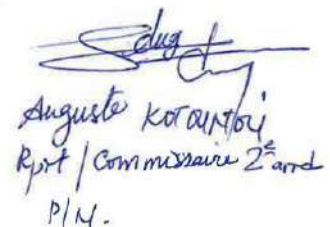 Auguste KOTOUNTOU
Rprt / Commissaire 2è arrd
P/M.